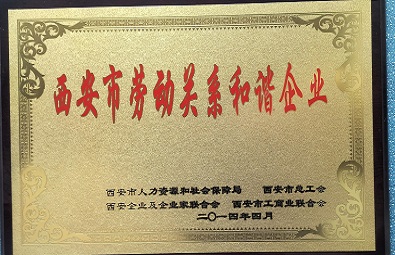 西安市劳动关系和谐企业
西安市人力资源和社会保障局 西安市总工会
西安企业及企业家联合会 西安市工商业联合会
二〇一四年四月